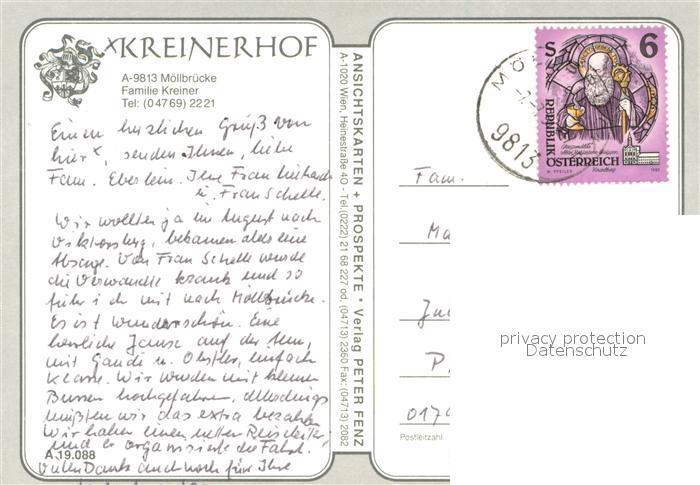 KREINERHOF
A-9813 Möllbrücke
Familie Kreiner
Tel: (04769) 2221
Einen herzlichen Gruß von
hier, senden Ihnen, liebe
Fam. Eberlein. Ihre Frau
u. Frau Schelle.
Wir wollten ja im August nach
Viktorsberg, bekamen aber eine
Absage. Von Frau Schelle wurde
die Verwandte krank und so
fuhr ich mit nach Möllbrücke.
Es ist wunderschön. Eine
herrliche Jause auf der Alm,
mit Gaudi u. Obstler, einfach
Klasse. Wir wurden mit kleinen
Bussen hochgefahren, allerdings
mußten wir das extra bezahlen
Wir haben einen netten Reiseleiter,
und er organisierte die Fahrt.
Vielen Dank auch noch für Ihre
A 19.088
ANSICHTSKARTEN + PROSPEKTE * Verlag PETER FENZ
A-1020 Wien, Heinestraße 40 - Tel. (0222) 21 68 227 od. (04713) 2360 Fax: (04713) 2082
9813
S 6
REPUBLIK
ÖSTERREICH
Fam.
Ma
P.
017
Postleitzahl
privacy protection
Datenschutz